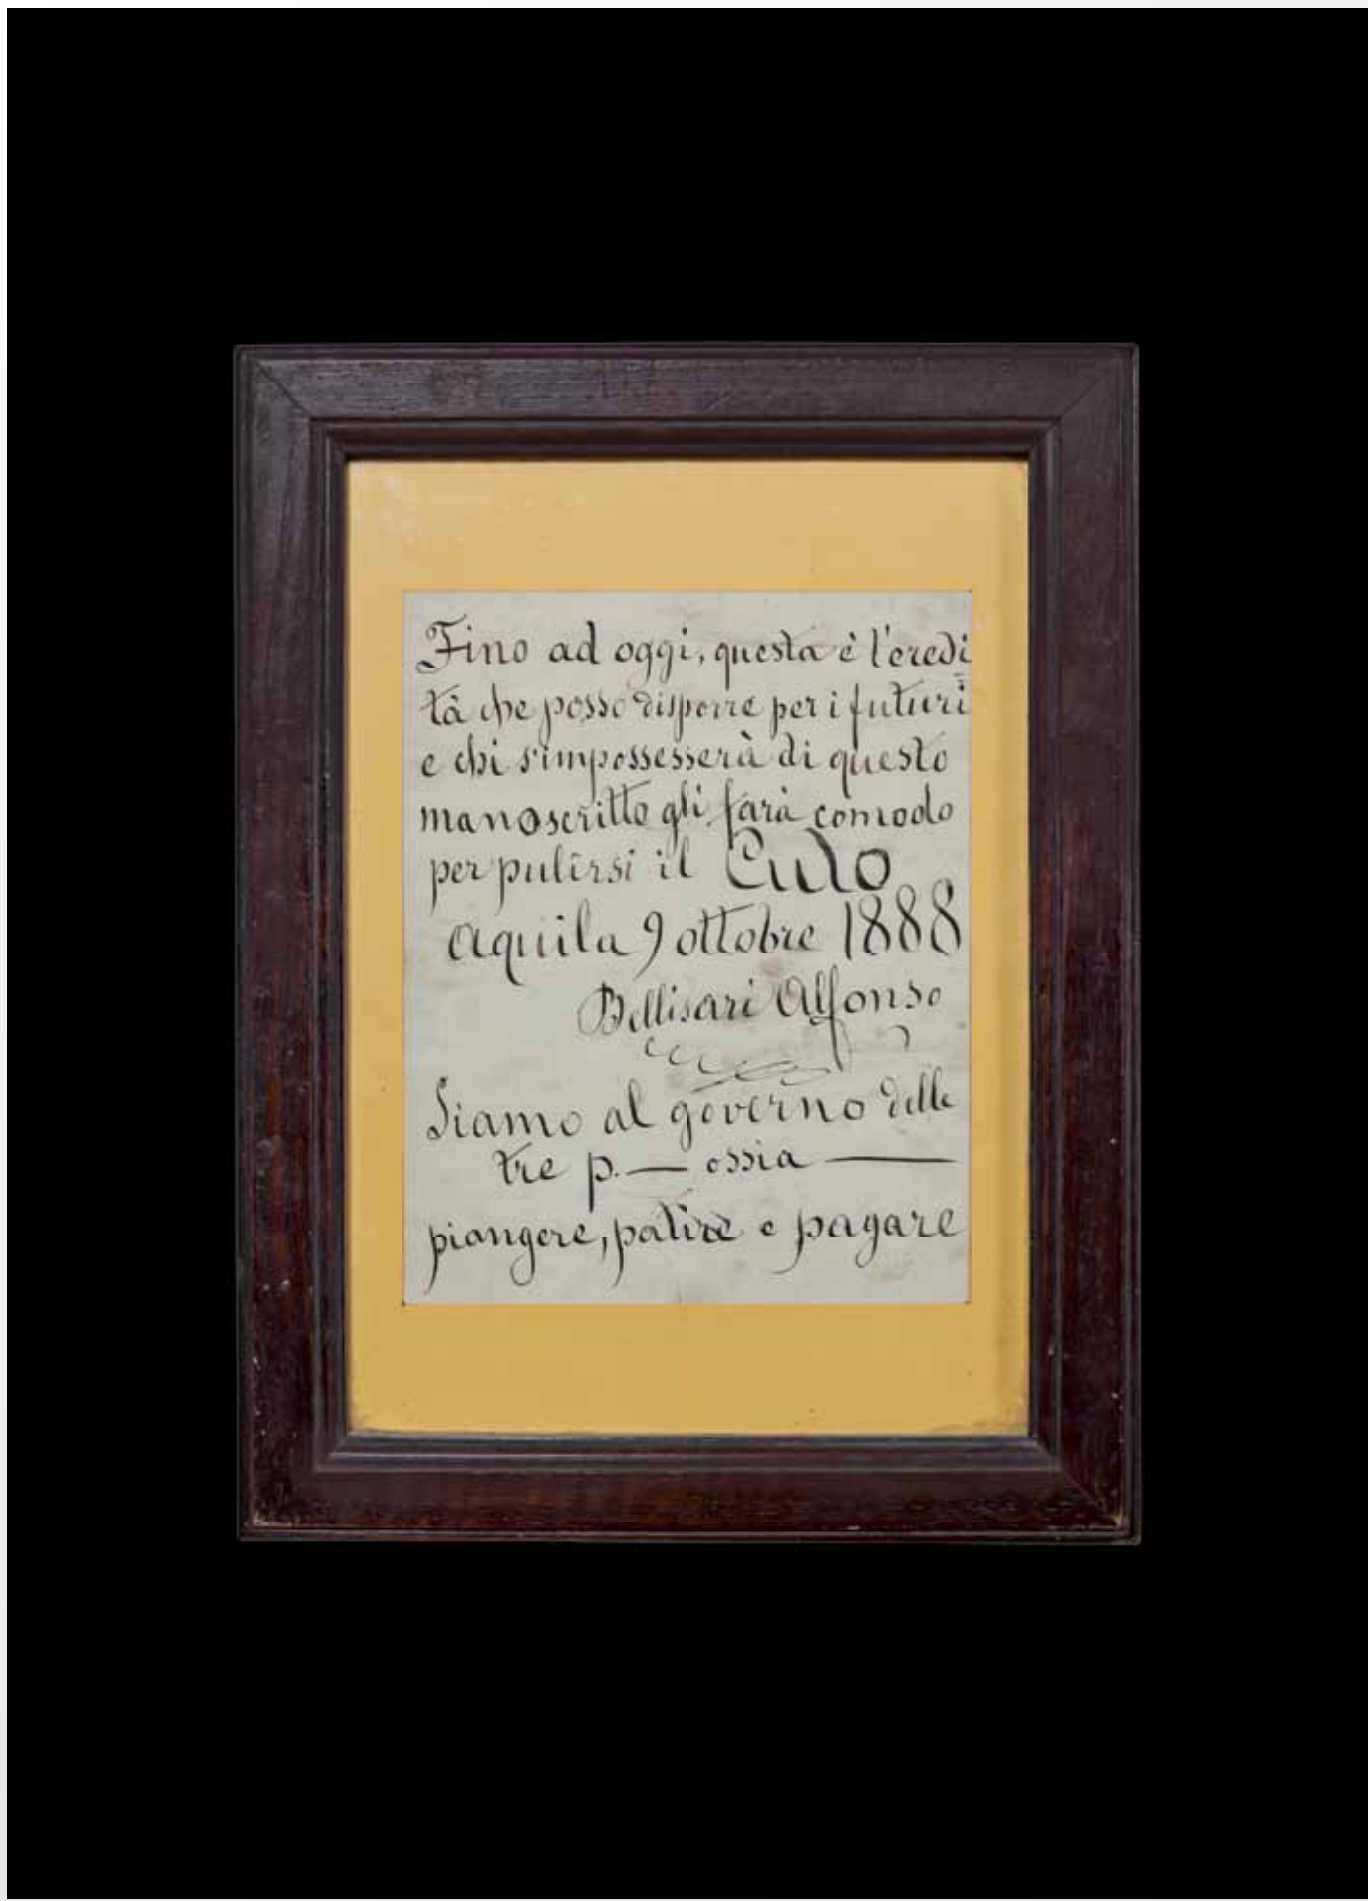 Fino ad oggi, questa è l'eredi
tà che posso disporre per i futuri
e chi s'impossesserà di questo
manoscritto gli farà comodo
per pulirsi il Culo
Aquila 9 ottobre 1888
Bellisari Alfonso
Siamo al governo delle
tre p. — ossia —
piangere, patire e pagare